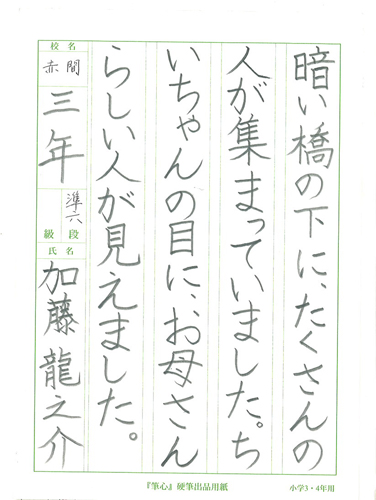 暗い橋の下に、たくさんの
人が集まっていました。ち
いちゃんの目に、お母さん
らしい人が見えました。
校名
赤間
三年
準六
級段
氏名
加藤龍之介
『筆心』硬筆出品用紙
小学3・4年用